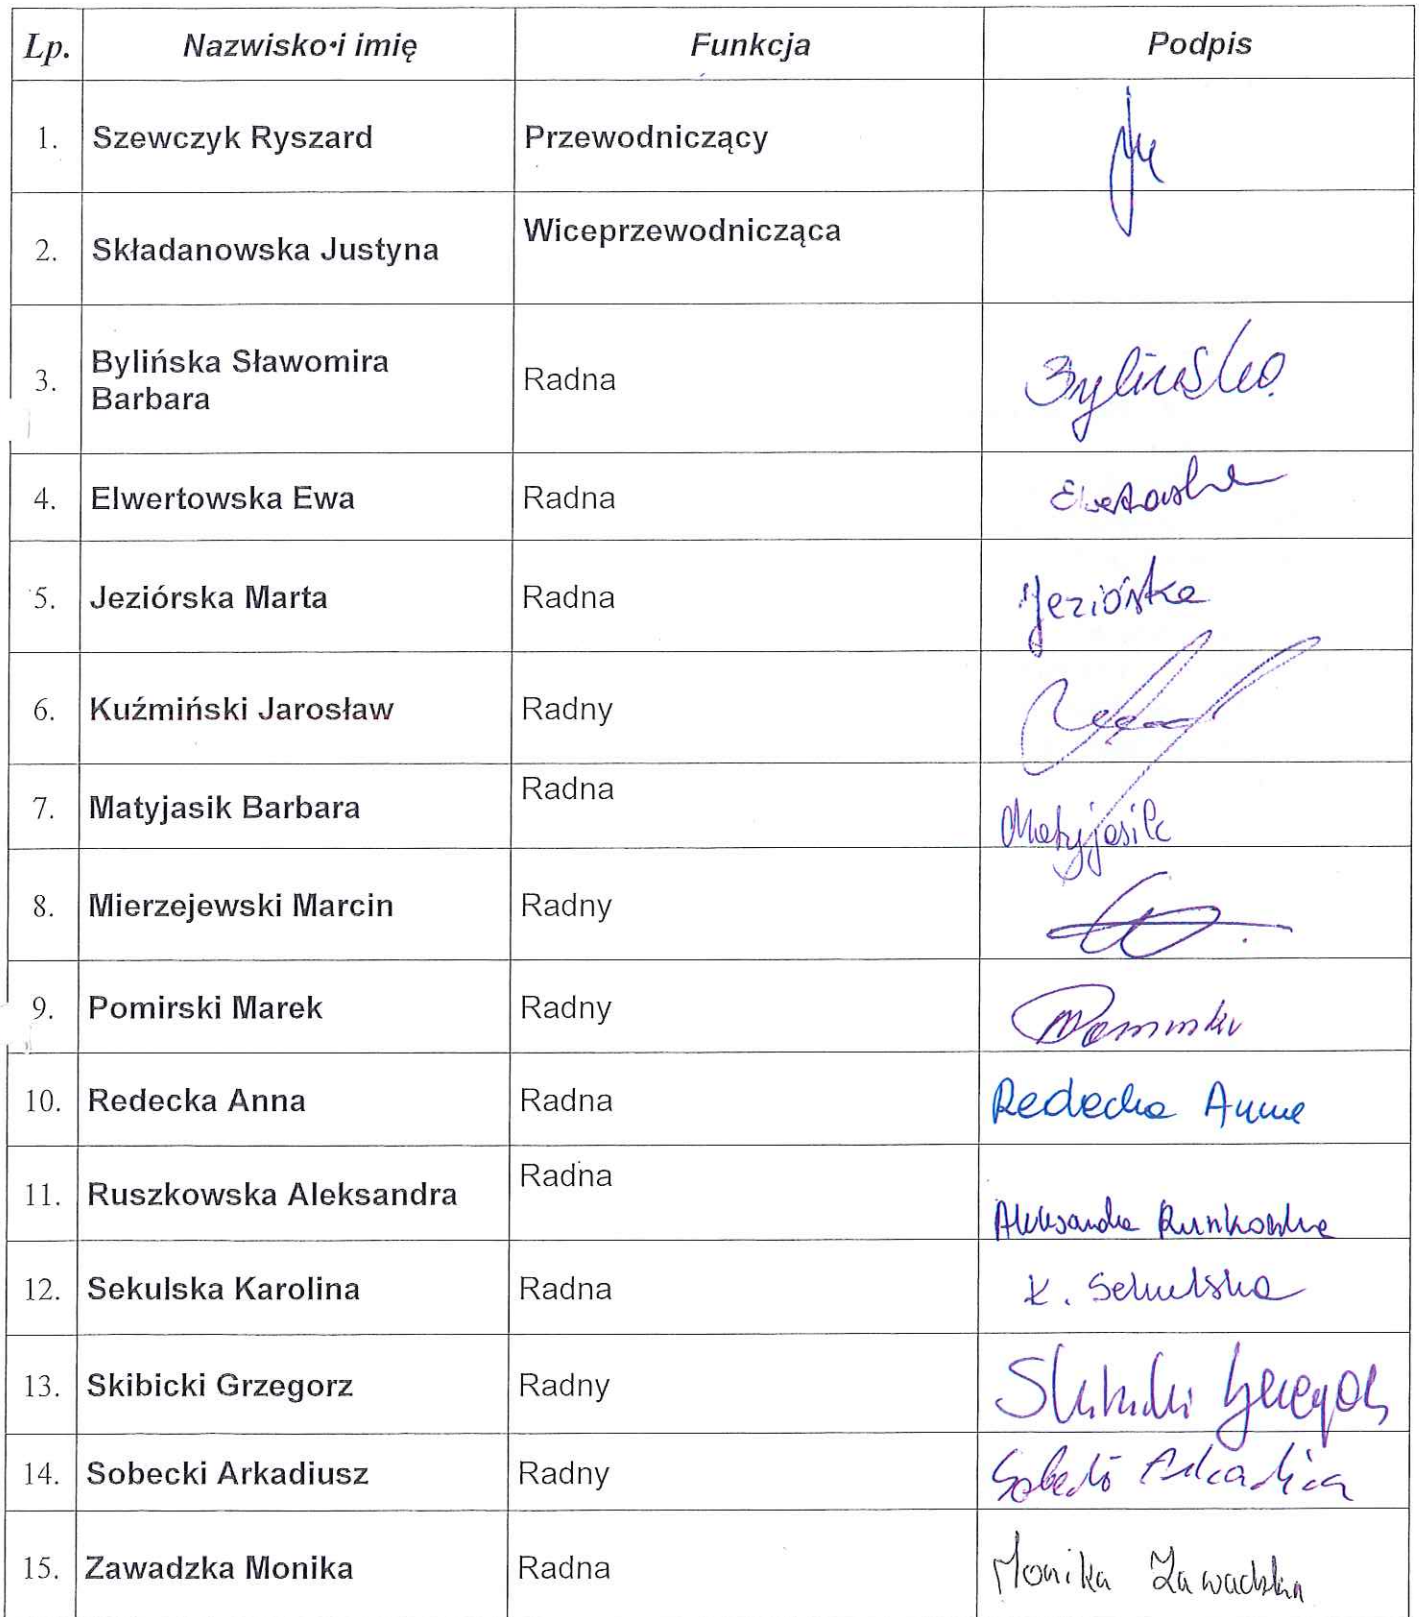 Lp. Nazwisko i imię Funkcja Podpis
1. Szewczyk Ryszard Przewodniczący
2. Składanowska Justyna Wiceprzewodnicząca
3. Bylińska Sławomira Barbara Radna Bylińska
4. Elwertowska Ewa Radna Elwertowska
5. Jeziórska Marta Radna Jeziórska
6. Kuźmiński Jarosław Radny
7. Matyjasik Barbara Radna Matyjasik
8. Mierzejewski Marcin Radny
9. Pomirski Marek Radny MPomirski
10. Redecka Anna Radna Redecka Anna
11. Ruszkowska Aleksandra Radna Aleksandra Ruszkowska
12. Sekulska Karolina Radna K. Sekulska
13. Skibicki Grzegorz Radny Skibicki Grzegorz
14. Sobecki Arkadiusz Radny Sobecki
15. Zawadzka Monika Radna Monika Zawadzka